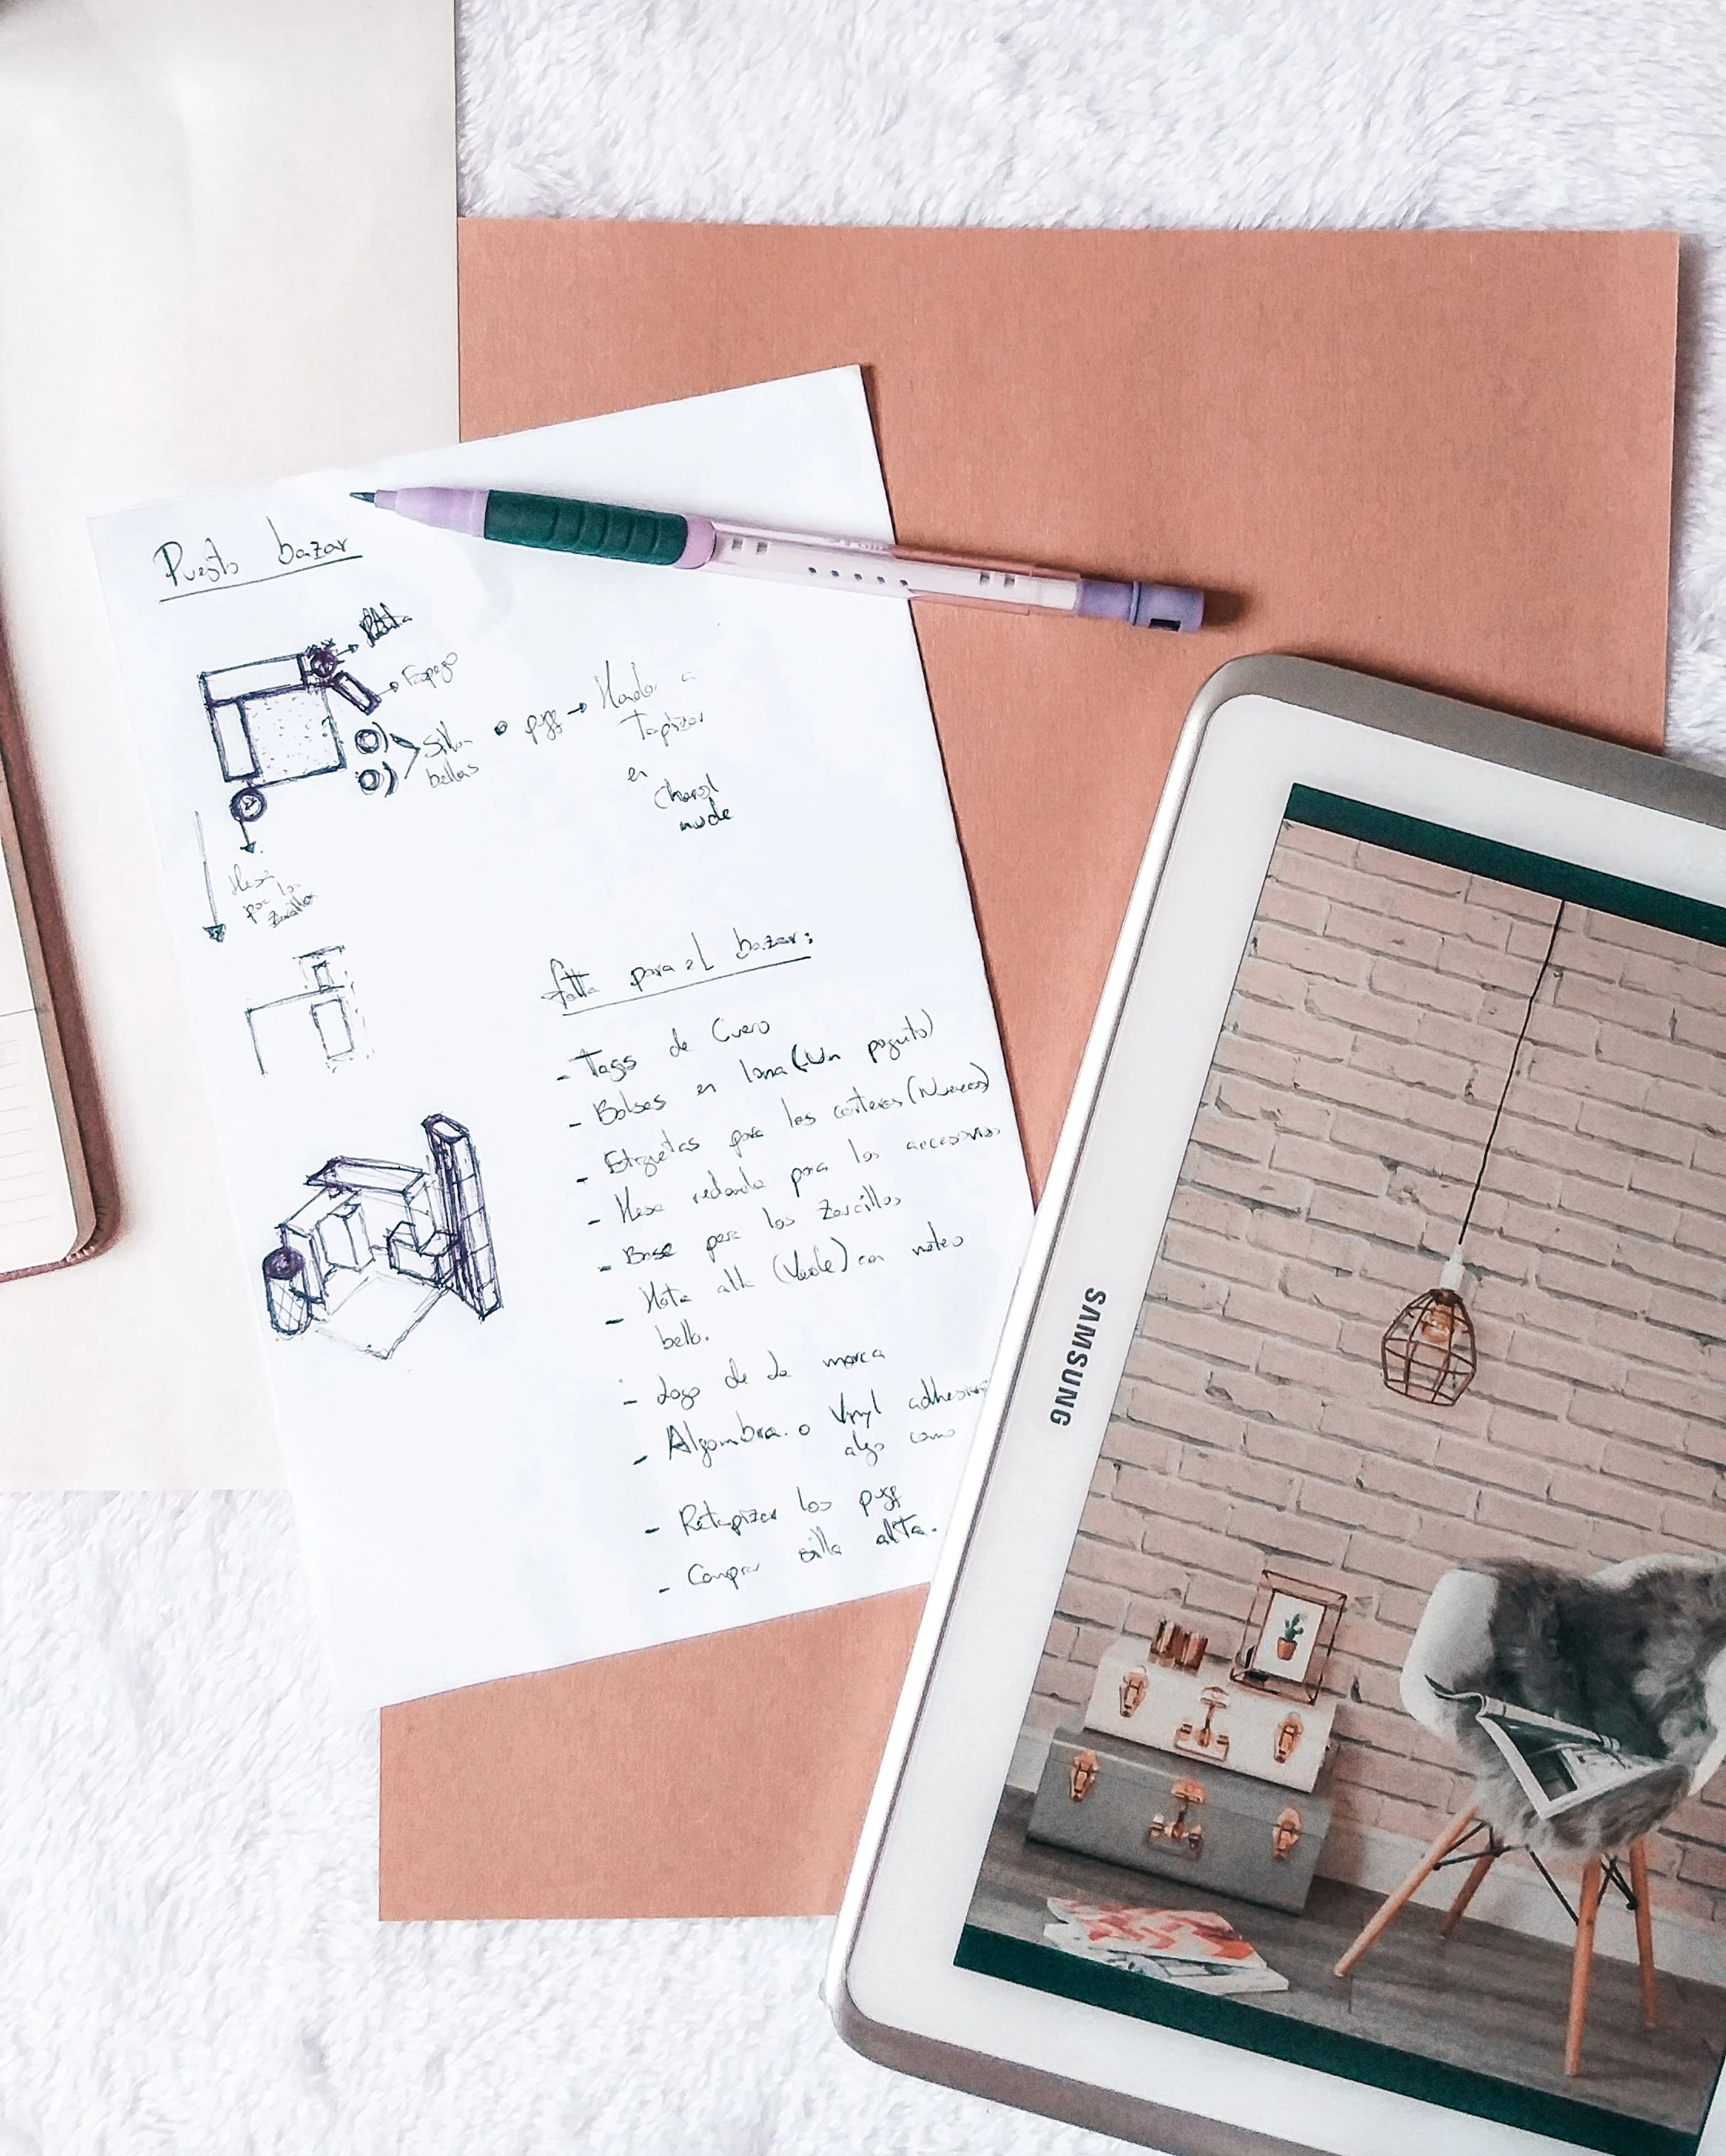 Puesto bazar
Mata
Espejo
Sillas o puff → Mandar a
bellas
Tapizar
en
Charol
nude
Mesa
para los
Zarcillos
falta para el bazar:
- Tags de Cuero
- Bolsas en lona (Un poquito)
- Etiquetas para las carteras (Nuevas)
- Mesa redonda para los accesorios
- Base para los Zarcillos
- Mata alta (Verde) con matero
bello.
- Logo de la marca
- Algombra o Vinyl adhesivo
algo como
- Retapizar los puff
- Comprar silla alta.
SAMSUNG